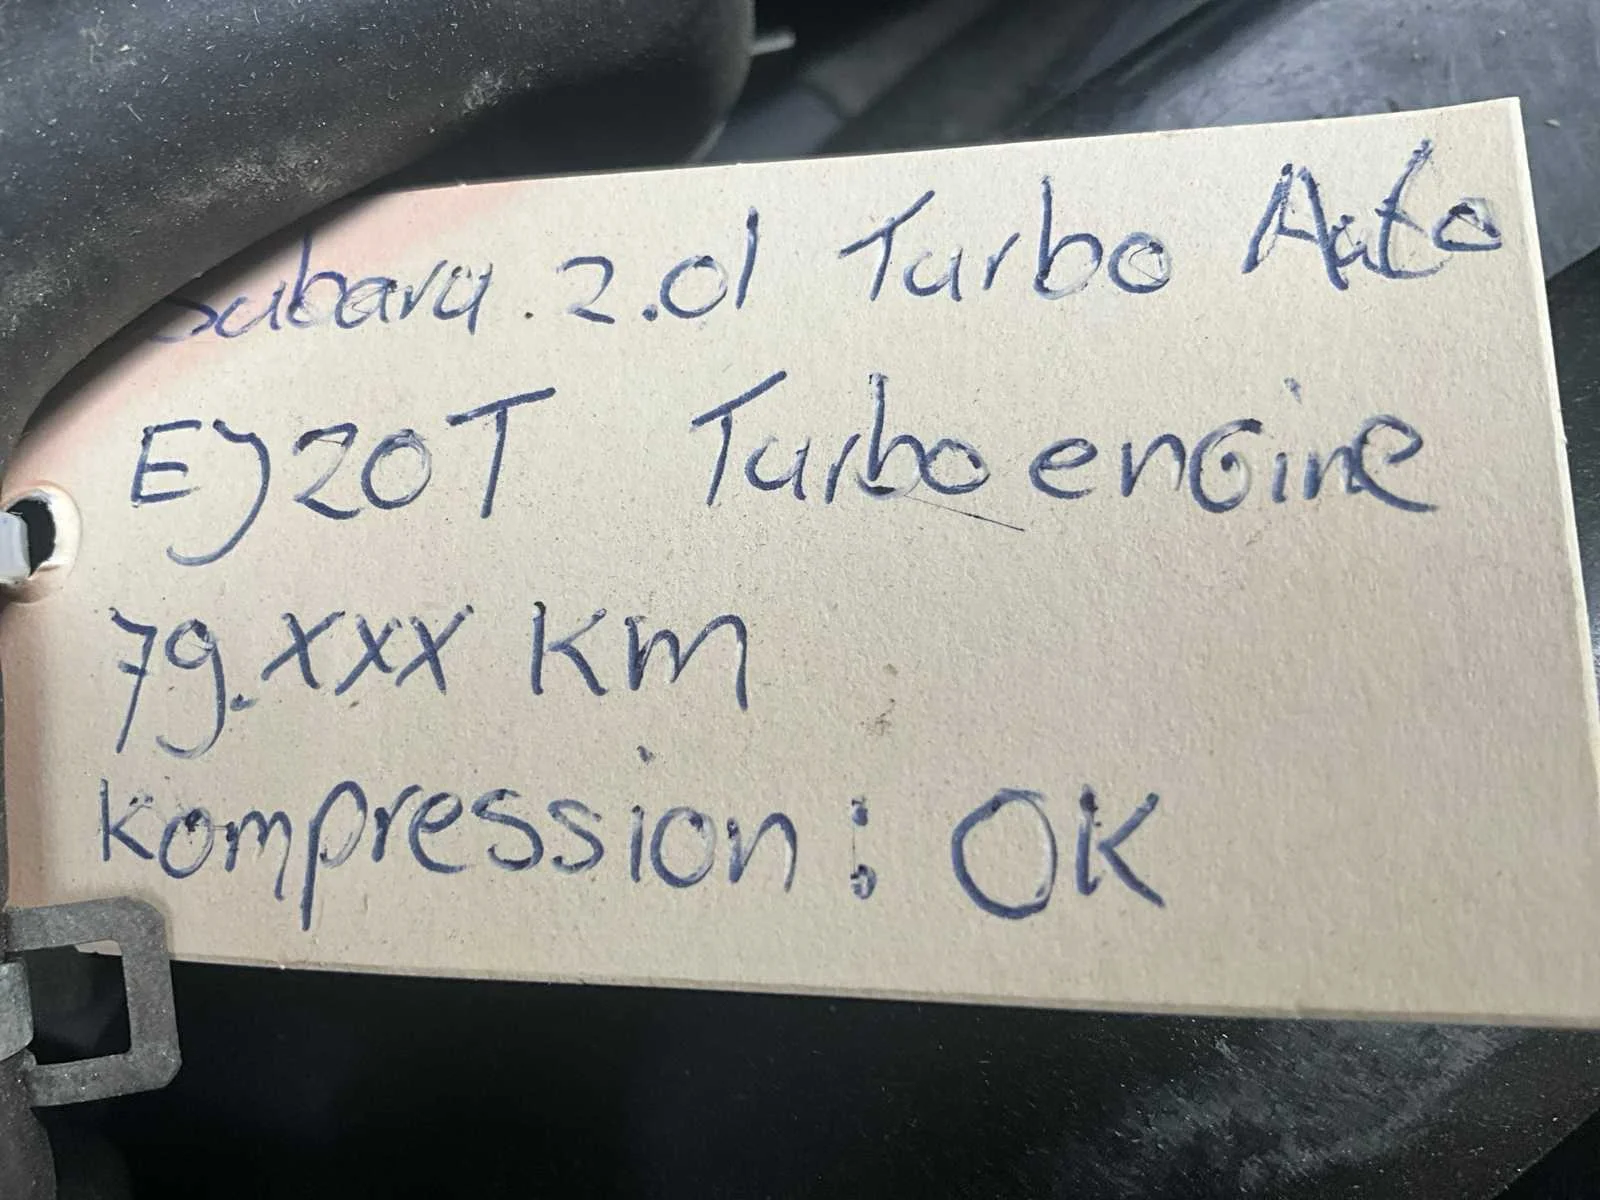 Subaru. 2.0l Turbo Auto
EJ20T Turbo engine
79.xxx km
kompression: OK